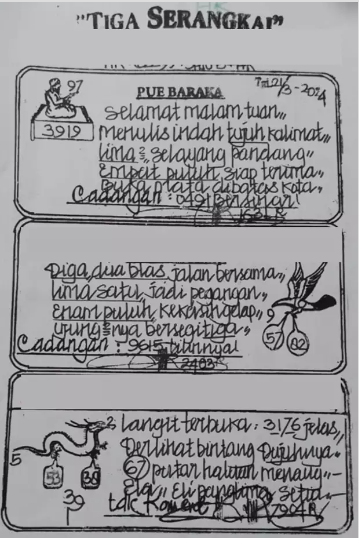 "TIGA SERANGKAI"
PUE BARAKA
97
3919
Selamat malam tuan,,
menulis indah tujuh kalimat,,
lima², selayang pandang,,
Empat puluh, siap terima,,
Buka mata dibatas kota,,
Cadangan : 0491
Diga, dua blas, jalan bersama,,
lima satu, jadi pegangan,,
Enam puluh, kekasih gelap,,
ujung²nya bersegitiga,,
Cadangan : 9615
57
82
2483
langit terbuka : 3176 jelas,,
Derlihat bintang Dujuhnya,,
67 putar haluan menang,,
Elgi,, Eli panglima setia
tak Koment
5
2
53
39
7904